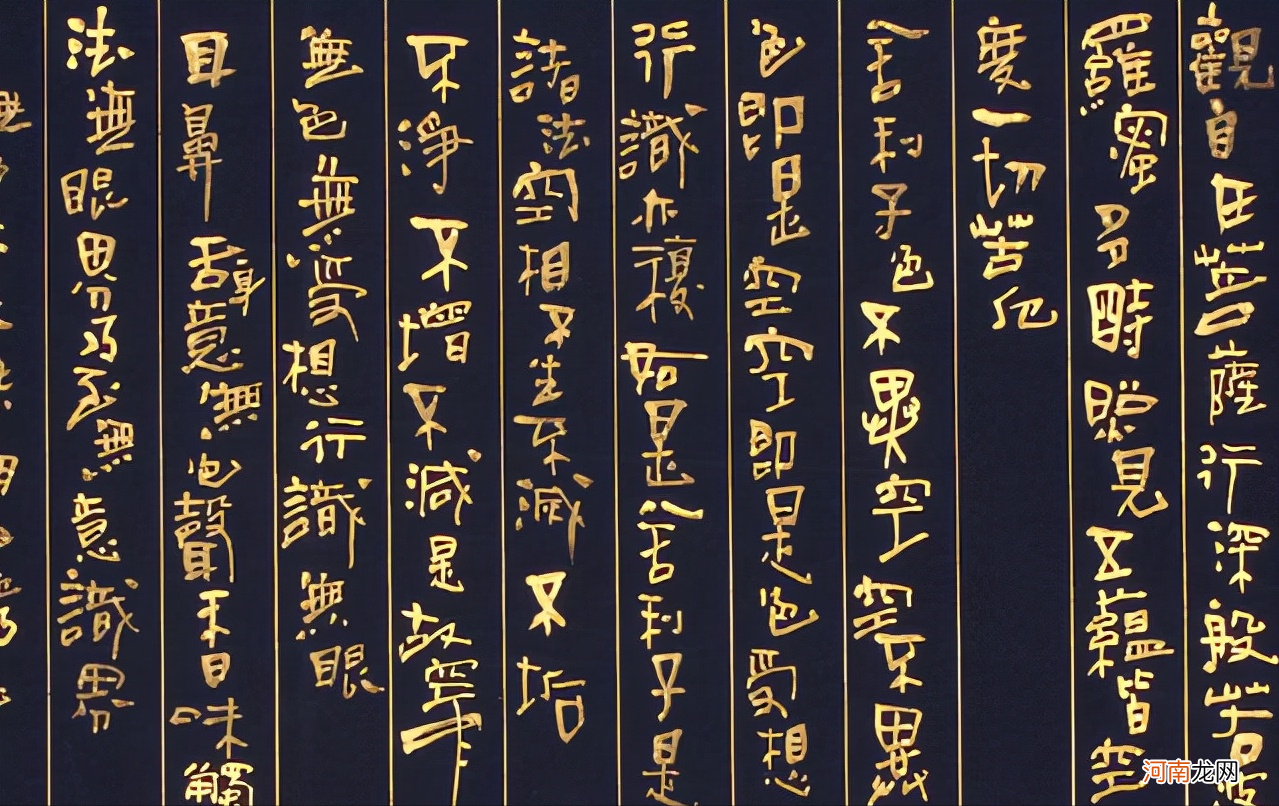 觀自在菩薩行深般若波
羅蜜多時照見五蘊皆空
度一切苦厄
舍利子色不異空空不異
色即是空空即是色受想
行識亦復如是舍利子是
諸法空相不生不滅不垢
不淨不增不減是故空中
無色無受想行識無眼
耳鼻舌身意無色聲香味觸
法無眼界乃至無意識界
河南龙网